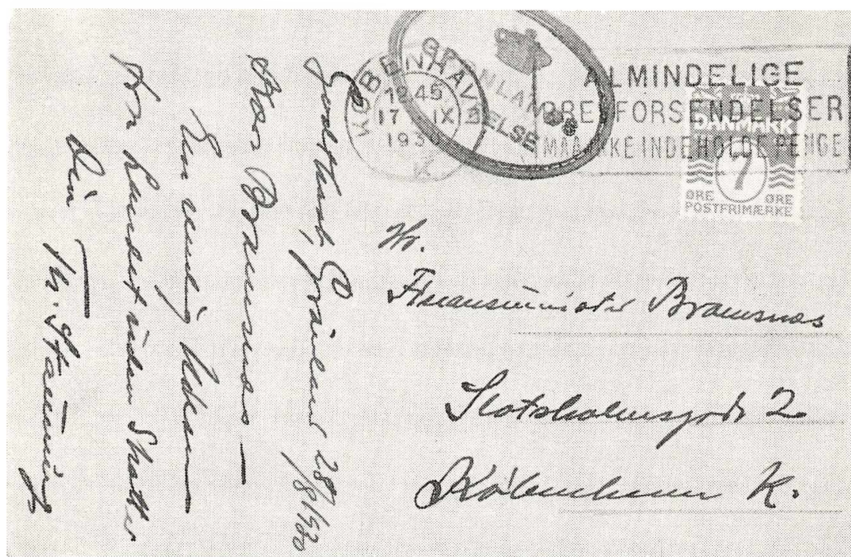 KØBENHAVN
18 45
17 IX
193
K
GRØNLANDS
STYRELSE
ALMINDELIGE
BREVFORSENDELSER
MAA IKKE INDEHOLDE PENGE
DANMARK
7
ØRE ØRE
POSTFRIMÆRKE
Hr.
Finansminister Bramsnæs
Slotsholmsgade 2
København K.
Godthaab, Grønland 28/8 1930
Kære Bramsnæs —
En venlig Hilsen
fra Landet uden Skatter
Din Th. Stauning